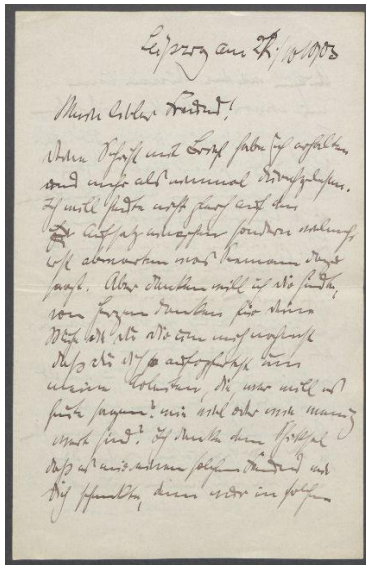 Leipzig am 28/10 1903
Mein lieber Freund!
Deine Schrift mit Brief habe ich erhalten
und mehr als einmal durchgelesen.
Ich will heute nicht gleich auf den
Aufsatz sondern
erst abwarten was Hermann dazu
sagt. Aber danken will ich Dir heute,
von Herzen danken für deine
die Du Dir um mich
daß Du Dich aufopferst um
meine Arbeiten, die, wer will es
heute sagen? wie viel oder wie wenig
wert sind? Ich danke dem Schicksal
daß es mir einen solchen Freund wie
Dich schenkte, denn nur in solchen